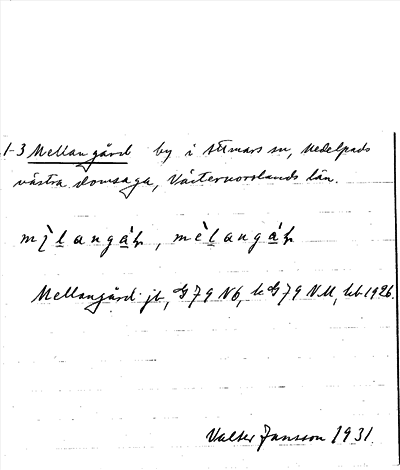 1-3 Mellangård by i Attmars sn, Medelpads
västra domsaga, Västernorrlands län.
mèlangáɽ, mèlangáɽ
Mellangård jb, G 79 N6, k G 79 NM, kb 1926.
Valter Jansson 1931.